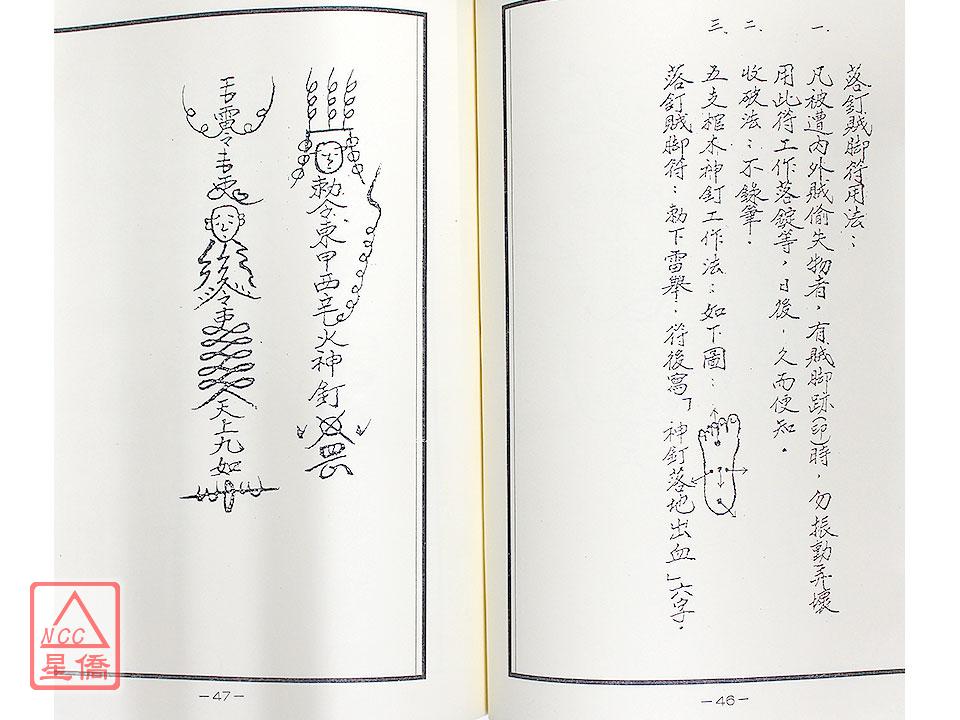 落釘賊脚符用法：
一、凡被遭內外賊偷失物者，有賊脚跡(印)時，勿振動弄壞
用此符工作落錠等，日後，久而便知。
二、收破法：不錄筆。
三、五支棺木神釘工作法：如下圖：
落釘賊脚符：勅下雷舉：符後寫「神釘落地出血」六字。
－46－
勅令東甲西辛火神釘
罡
雷令
令
天上九如
－47－
NCC
星僑